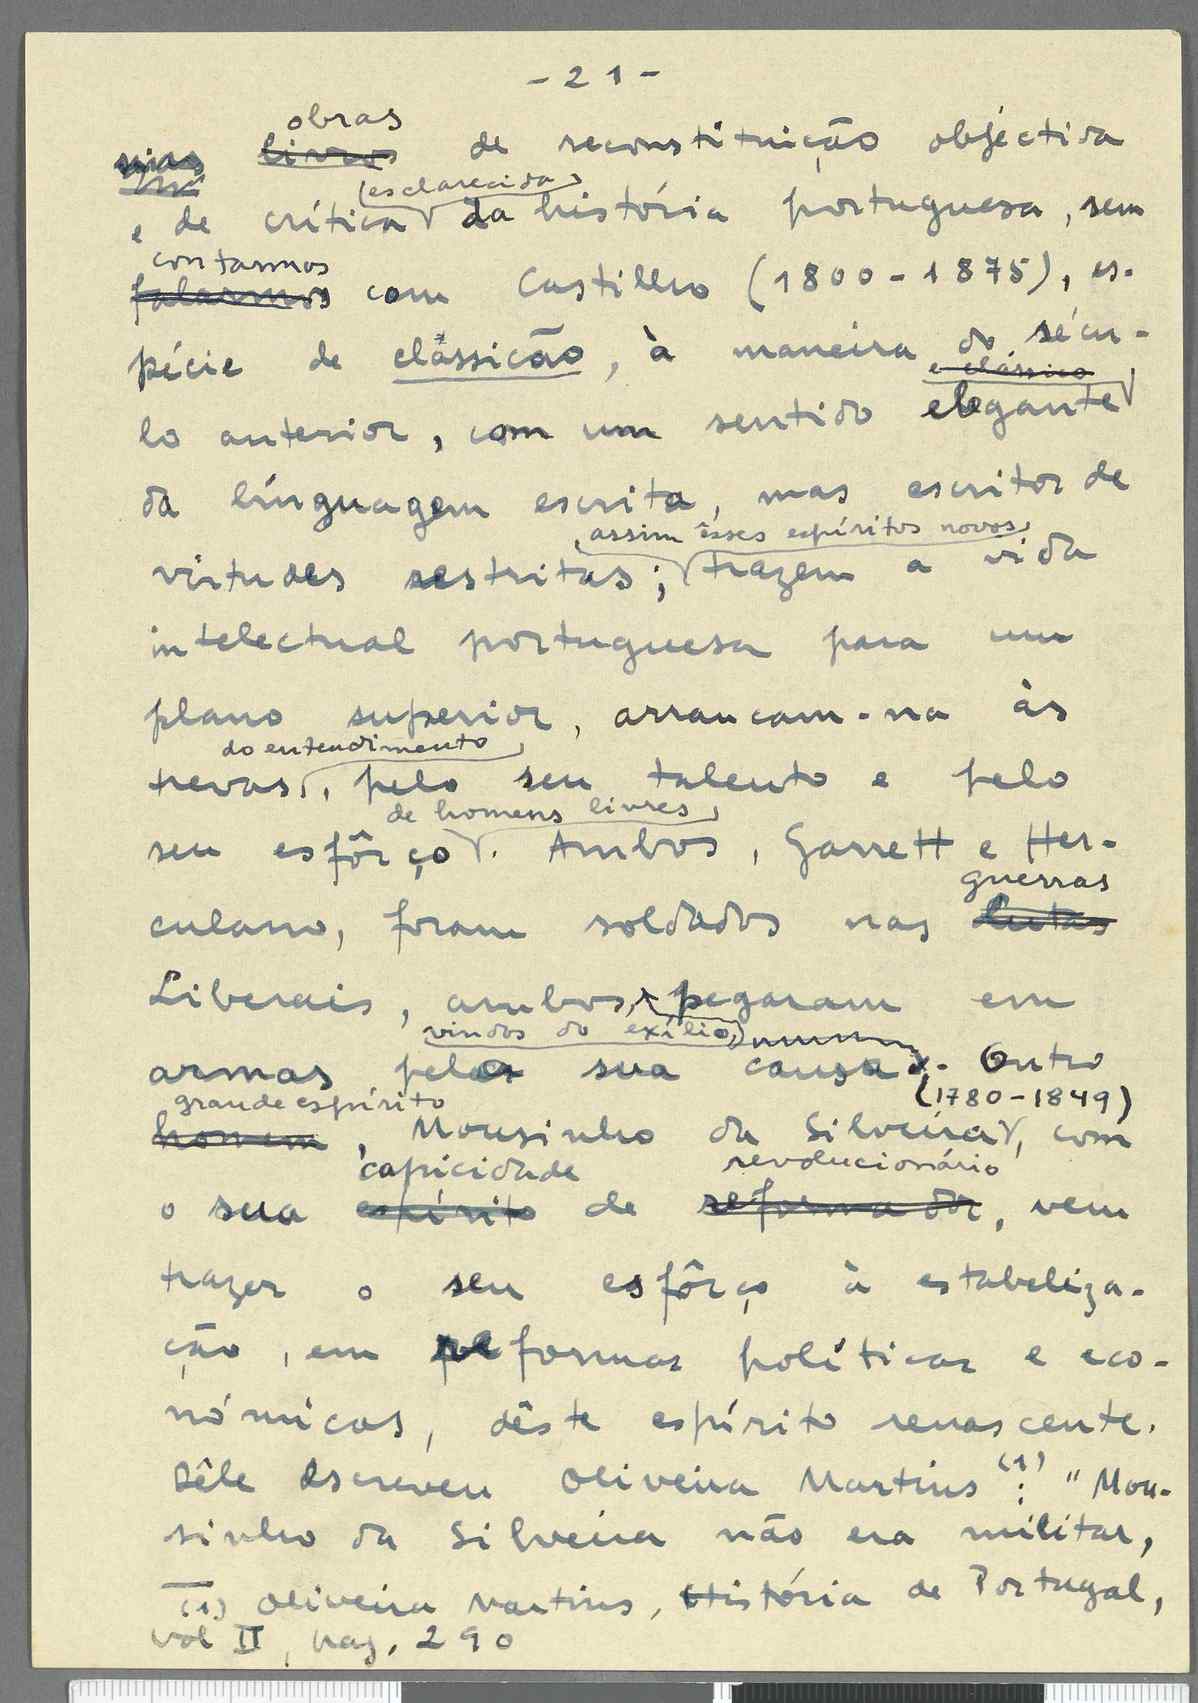 - 21 -
obras
livros de reconstituição objéctiva
(esclarecida)
e de crítica da história portuguesa, sem
contarmos
falarmos com Castilho (1800-1875), es-
pécie de clàssicão, à maneira do sécu-
e clássico
lo anterior, com um sentido elegante
da linguagem escrita, mas escritor de
assim êsses espíritos novos
virtudes restritas; trazem a vida
intelectual portuguesa para um
plano superior, arrancam-na às
do entendimento
trevas, pelo seu talento e pelo
de homens livres
seu esfôrço. Ambos, Garrett e Her-
guerras
culano, foram soldados nas lutas
Liberais, ambos, pegaram em
vindos do exílio,
armas pela sua causa. Outro
grande espírito (1780-1849)
homem, Mousinho da Silveira, com
capicidade revolucionário
o sua espírito de reformador, vem
trazer o seu esfôrço à estabeliza-
ção, em reformas políticas e eco-
nómicas, dêste espírito renascente.
Dêle escreveu Oliveira Martins (1): "Mou-
sinho da Silveira não era militar,
(1) Oliveira Martins, História de Portugal,
vol II, pag. 290